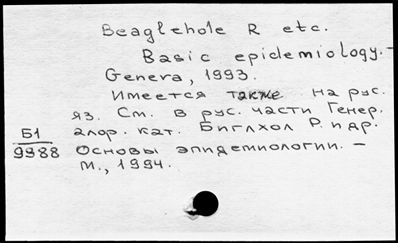 Beaglehole R etc.
Basic epidemiology.-
Genera, 1993.
Имеется также на рус.
яз. См. в рус. части Генер.
алф. кат. Биглхол Р. и др.
Б1
9988
Основы эпидемиологии. -
М., 1994.